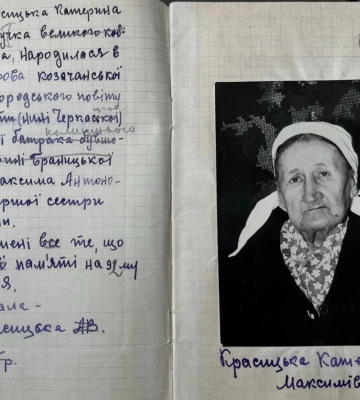 асицька Катерина
учка великого коб-
а, народилася в
рова козачанської
городського повіту
ти (нині Черкаської
колишнього
ї батрака бувшо-
ині Браницької
аксима Антоно-
ршої сестри
и.
мені все те, що
ї пам'яті на 92 му
я.
ала -
асицька АВ.
р.
Красицька Кате
Максимів